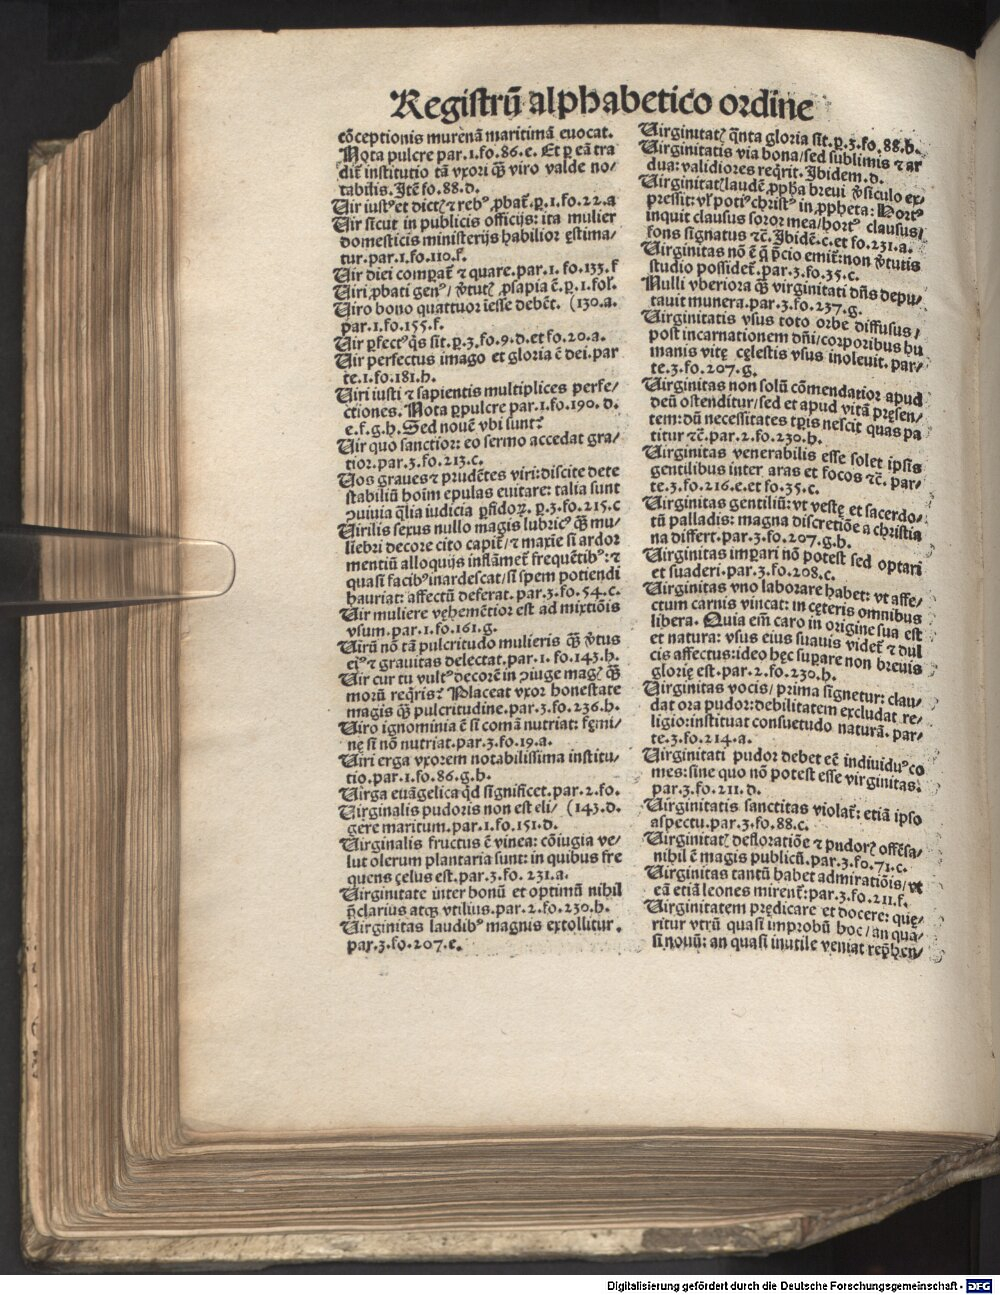 Registrū alphabetico ordine
cōceptionis murenā maritimā euocat.
Nota pulcre par.1.fo.86.e. Et ꝑ eā tra
dit̄ institutio tā vxori qꝫ̄ viro valde no/
tabilis. Itē fo.88.d.
Uir iustꝰ et dictꝭ ⁊ rebꝰ ꝓbat̄.ꝑ.1.fo.22.a
Uir sicut in publicis officijs: ita mulier
domesticis ministerijs habilior ęstima/
tur.par.1.fo.110.f.
Uir diei comparat̄ ⁊ quare.par.1. fo.133.f
Uiri ꝓbati genꝰ/ v̄tutꝭ ꝓsapia ē.ꝑ.1.fol.
Uiro bono quattuor īesse debēt. (130.a.
par.1.fo.155.f.
Uir ꝑfectꝰ q̄s sit.ꝑ.3.fo.9.d.et fo.20.a.
Uir perfectus imago et gloria ē dei.par
te.1.fo.181.h.
Uiri iusti ⁊ sapientis multiplices perfe/
ctiones. Nota ꝑpulcre par.1.fo.190. d.
e.f.g.h. Sed nouē vbi sunt?
Uir quo sanctior: eo sermo accedat gra/
tior.par.3.fo.213.c.
Uos graues ⁊ prudētes viri:discite dete
stabiliū hoīm epulas euitare: talia sunt
ↄuiuia q̄lia iudicia ꝑfidoꝝ. ꝑ.3.fo.215.c
Uirilis sexus nullo magis lubricꝰ qꝫ̄ mu/
liebri decore cito capit̄/⁊ maxīe si ardor
mentiū alloquijs inflāmet̄ frequētibꝰ:⁊
quasi facibꝰ inardescat/si spem potiendi
hauriat: affectū deferat. par.3.fo.54.c.
Uir muliere vęhemētior est ad mixtiōis
vsum.par.1.fo.161.g.
Uirū nō tā pulcritudo mulieris qꝫ̄ v̄tus
eiꝰ ⁊ grauitas delectat.par.1. fo.143.h.
Uir cur tu vultꝰ decorē in ↄiuge magꝭ qꝫ̄
morū req̄ris? Placeat vxor honestate
magis qꝫ̄ pulcritudine.par.3.fo.236.h.
Uiro ignominia ē si comā nutriat: fęmi/
nę si nō nutriat.par.3.fo.19.a.
Uiri erga vxorem notabilissima institu/
tio.par.1.fo.86.g.h.
Uirga euāgelica qd̄ significet.par.2.fo.
Uirginalis pudoris non est eli/ (143.d.
gere maritum.par.1.fo.151.d.
Uirginalis fructus ē vinea: cōiugia ve/
lut olerum plantaria sunt: in quibus fre
quens çelus est.par.3.fo. 231.a.
Uirginitate inter bonū et optimū nihil
p̄clarius atqꝫ vtilius.par.2.fo.230.h.
Uirginitas laudibꝰ magnis extollitur.
par.3.fo.207.e.
Uirginitatꝭ q̄nta gloria sit.ꝑ.3.fo.88.h.
Uirginitatis via bona/sed sublimis ⁊ ar
dua: validiores req̄rit. Ibidem.d.
Uirginitatꝭ laudē ꝓpħa breui v̄siculo ex/
pressit: vl̓ potiꝰ christꝰ in ꝓpheta: Hortꝰ
inquit clausus soror mea/hortꝰ clausus/
fons signatus ⁊c̄. Ibidē.c.et fo.231.a.
Uirginitas nō ē q̄ p̄cio emit̄:non v̄tutis
studio possidet̄.par.3.fo.35.c.
Nulli vberiora qꝫ̄ virginitati dn̄s depu/
tauit munera.par.3.fo.237.g.
Uirginitatis vsus toto orbe diffusus/
post incarnationem dn̄i/corporibus hu
manis vitę cęlestis vsus inoleuit. par/
te.3.fo.207.g.
Uirginitas non solū cōmendatior apud
deū ostenditur/sed et apud vitā pręsen/
tem:dū necessitates tp̄is nescit quas pa
titur ⁊c̄.par.2.fo.230.h.
Uirginitas venerabilis esse solet ipsis
gentilibus inter aras et focos ⁊c̄. par/
te.3.fo.216.e.et fo.35.c.
Uirginitas gentiliū: vt vestę et sacerdo/
tū palladis: magna discretiōe a christia
na differt.par.3.fo.207.g.h.
Uirginitas imꝑari nō potest sed optari
et suaderi.par.3.fo.208.c.
Uirginitas vno laborare habet: vt affe/
ctum carnis vincat: in cęteris omnibus
libera. Quia em̄ caro in origine sua est
et natura: vsus eius suauis videt̄ ⁊ dul
cis affectus:ideo hęc suꝑare non breuis
glorię est.par.2.fo.230.h.
Uirginitas vocis/ prima signetur: clau/
dat ora pudor:debilitatem excludat re/
ligio:instituat consuetudo naturā. par/
te.3.fo.214.a.
Uirginitati pudor debet eē indiuiduꝰ co
mes:sine quo nō potest esse virginitas.
par.3.fo.211.d.
Uirginitatis sanctitas violat̄: etiā ipso
aspectu.par.3.fo.88.c.
Uirginitatꝭ defloratiōe ⁊ pudorꝭ offēsa/
nihil ē magis publicū.par.3.fo.71.c.
Uirginitas tantū habet admiratiōis/vt
eā etiā leones mirent̄:par.3.fo.211.f.
Uirginitatem prędicare et docere: quę/
ritur vtrū quasi improbū hoc/an qua/
si nouū: an quasi inutile veniat repħen/
Digitalisierung gefördert durch die Deutsche Forschungsgemeinschaft - DFG